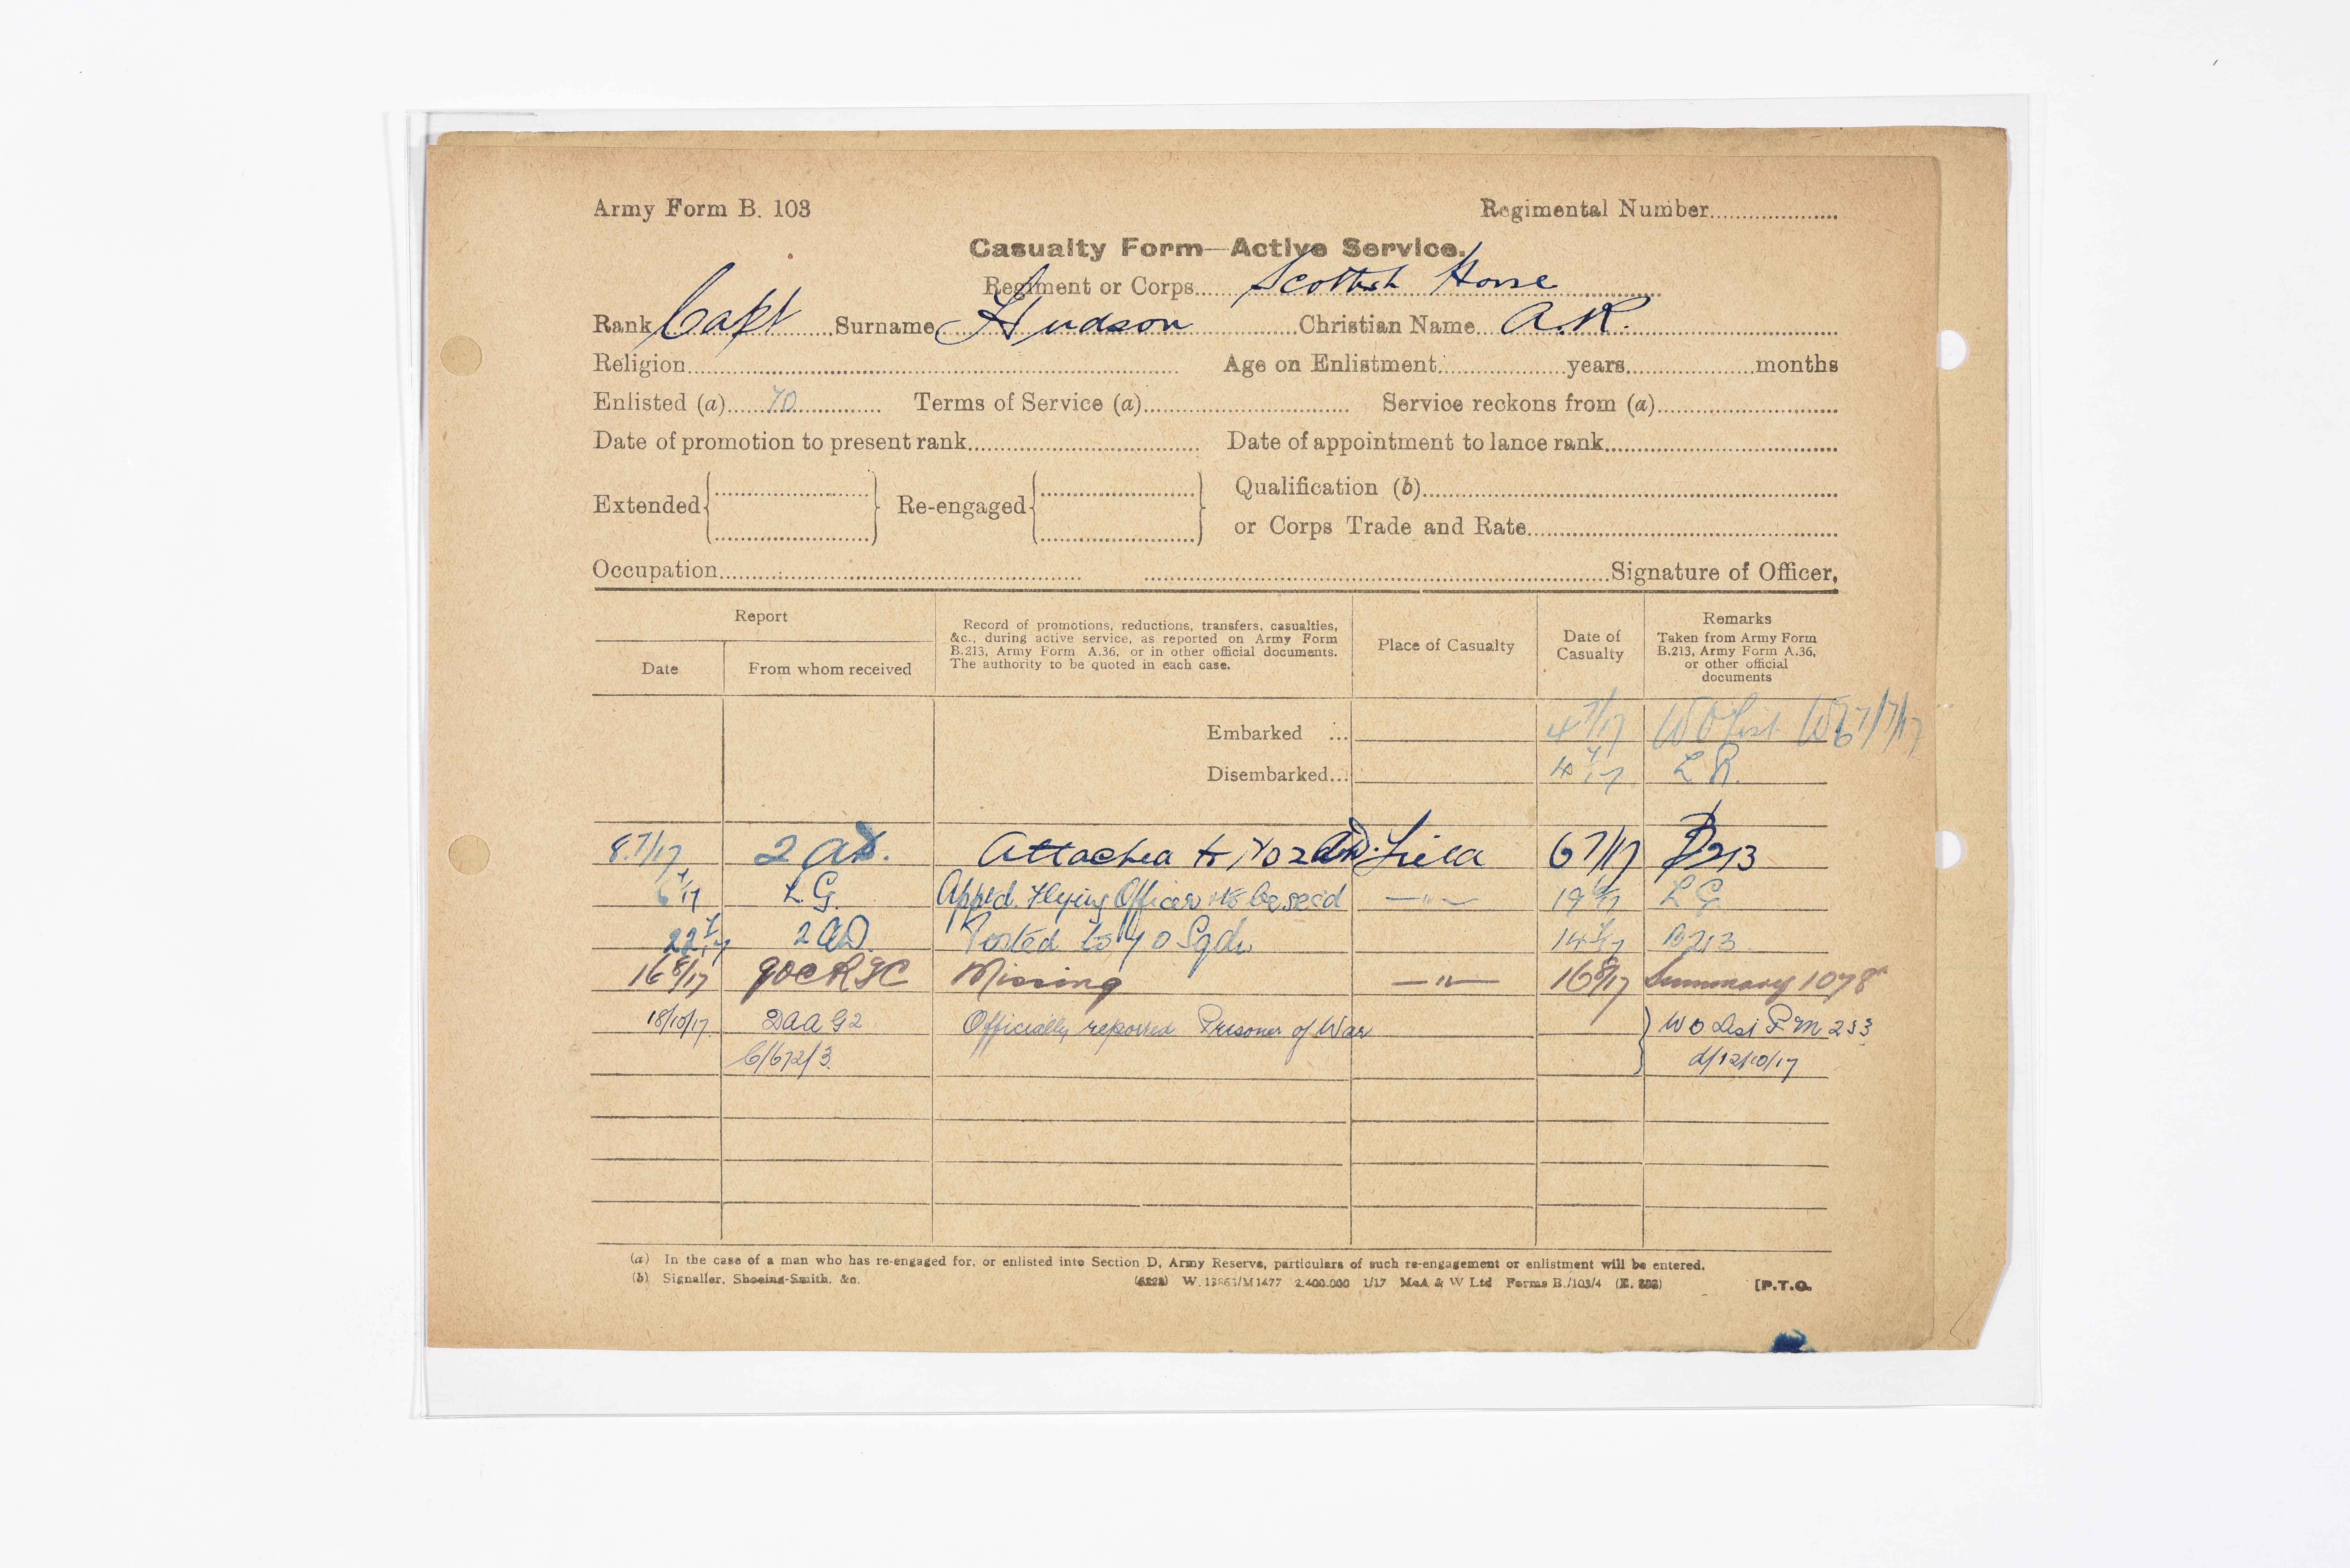 Army Form B. 103 Regimental Number
Casualty Form—Active Service.
Regiment or Corps Scottish Horse
Rank Capt Surname Hudson Christian Name A.R.
Religion Age on Enlistment years months
Enlisted (a) 70 Terms of Service (a) Service reckons from (a)
Date of promotion to present rank Date of appointment to lance rank
Extended Re-engaged Qualification (b)
or Corps Trade and Rate
Occupation Signature of Officer,
Report
Date From whom received
Record of promotions, reductions, transfers, casualties,
&c., during active service, as reported on Army Form
B.213, Army Form A.36, or in other official documents.
The authority to be quoted in each case.
Place of Casualty
Date of
Casualty
Remarks
Taken from Army Form
B.213, Army Form A.36,
or other official
documents
Embarked ... 4 7/17 WO List 7/7/17
Disembarked... 4 7/17 L R.
8.7/17 2 AD. Attached to No 2 AD. Field 6 7/17 B213
L.G. Apptd. Flying Officer & to be secd —"— 19 6/17 L G.
22 7/17 2 AD. Posted to 70 Sqdn 14 7/17 B213
16 8/17 GOC RFC Missing —"— 16 8/17 Summary 1078
18/10/17 DAAG2 Officially reported Prisoner of War WO List 233
C/672/3 d/12/10/17
(a) In the case of a man who has re-engaged for, or enlisted into Section D, Army Reserve, particulars of such re-engagement or enlistment will be entered.
(b) Signaller, Shoeing-Smith, &c. W. 13863/M1477 2,400,000 1/17 McA & W Ltd Forms B./103/4 [P.T.O.